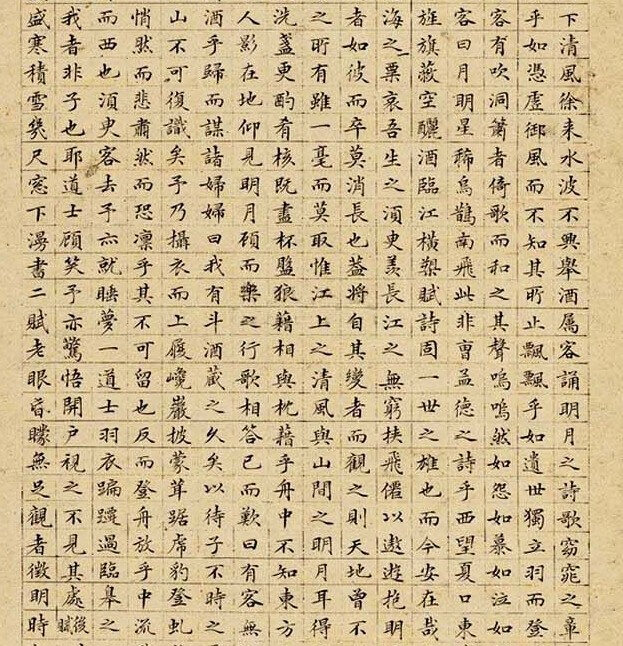 下清風徐来水波不興舉酒属客誦明月之詩歌窈窕之章
乎如憑虛御風而不知其所止飄飄乎如遺世獨立羽而登
客有吹洞簫者倚歌而和之其聲嗚嗚然如怨如慕如泣如
客曰月明星稀烏鵲南飛此非曹孟德之詩乎西望夏口東
旌旗蔽空釃酒臨江橫槊賦詩固一世之雄也而今安在哉
海之粟哀吾生之須臾羨長江之無窮挾飛僊以遨遊抱明
者如彼而卒莫消長也蓋將自其變者而觀之則天地曾不
之所有雖一毫而莫取惟江上之清風與山間之明月耳得
洗盞更酌肴核既盡杯盤狼籍相與枕藉乎舟中不知東方
人影在地仰見明月顧而樂之行歌相答已而歎曰有客無
酒乎歸而謀諸婦婦曰我有斗酒藏之久矣以待子不時之
山不可復識矣予乃攝衣而上履巉巖披蒙茸踞虎豹登虬
悄然而悲肅然而恐凜乎其不可留也反而登舟放乎中流
而西也須臾客去予亦就睡夢一道士羽衣蹁躚過臨皋之
我者非子也耶道士顧笑予亦驚悟開戶視之不見其處後賦
盛寒積雪幾尺窓下漫書二賦老眼昏矇無足觀者徵明時